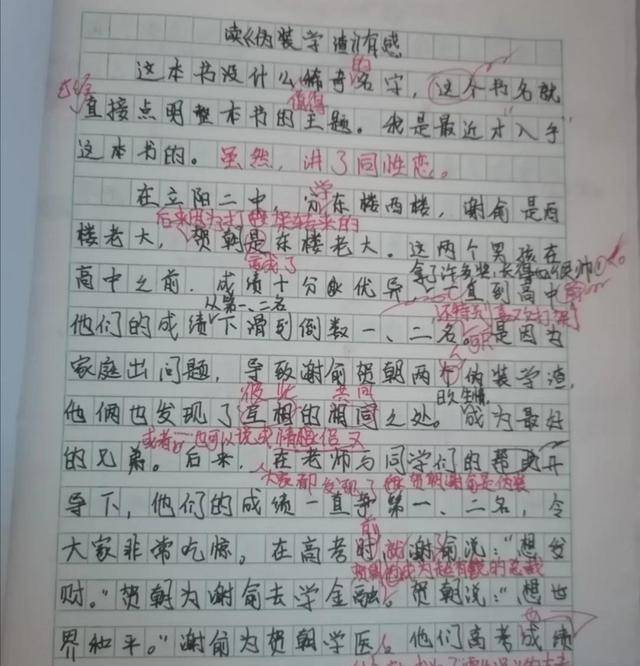 读《伪装学渣》有感
的
这本书没什么稀奇名字,这个书名就
已经
值得
直接点明整本书的主题。我是最近才“入手”
这本书的。虽然,讲了同性恋。
学
在立阳二中,分东楼西楼,谢俞是西
后来因为打架转来的
楼老大,贺朝是东楼老大。这两个男孩在
高中之前,成绩十分优异,一直到高中
从第一、二名
他们的成绩下滑到倒数一、二名。是因为
家庭出问题,导致谢俞贺朝两个伪装学渣,
彼此 共同
他俩也发现了互相的相同之处。成为最好
或者也可以说是情侣
的兄弟。后来,在老师与同学们的帮助开
大家都发现了贺朝谢俞是伪装
导下,他们的成绩一直争第一、二名,令
前
大家非常吃惊。在高考时,谢俞说:“想发
财。”贺朝为谢俞去学金融。贺朝说:“想世
界和平。”谢俞为贺朝学医。他们高考成绩